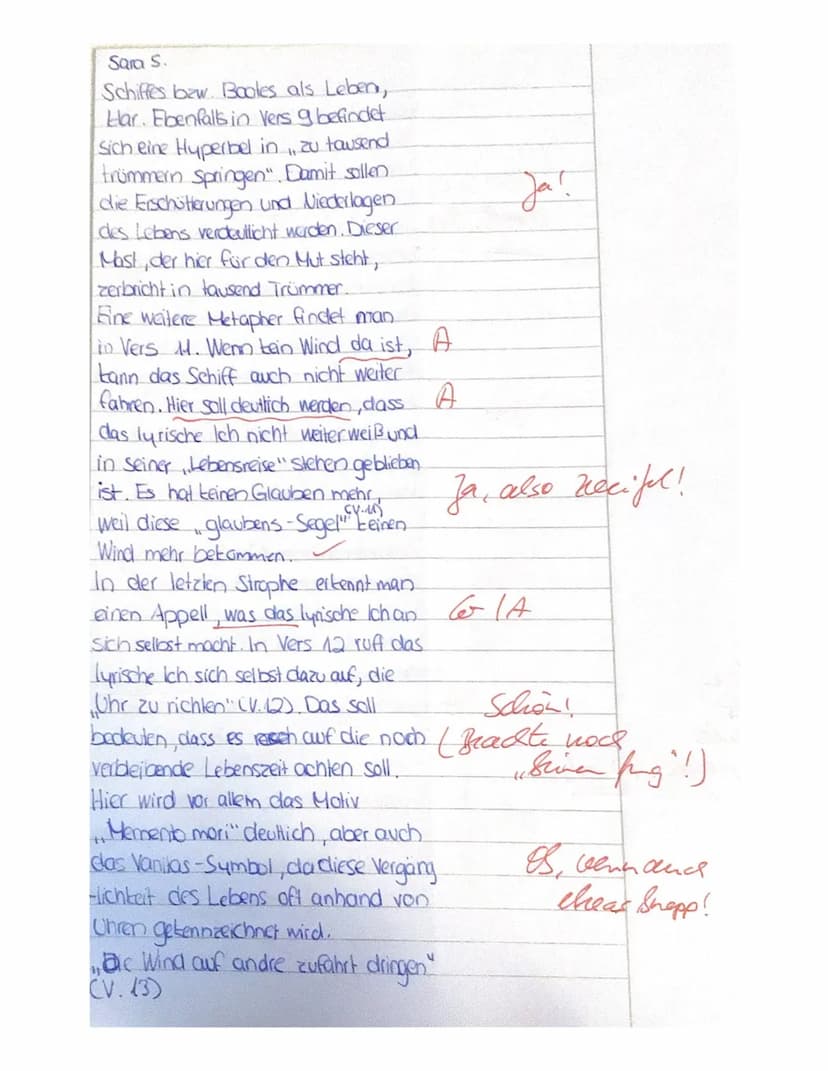 Sara S.
Schiffes bzw. Bootes als Leben,
klar. Ebenfalls in Vers 9 befindet
sich eine Hyperbel in „zu tausend
trümmern springen“. Damit sollen
die Erschütterungen und Niederlagen
Ja!
des Lebens verdeutlicht werden. Dieser
Mast, der hier für den Mut steht,
zerbricht in tausend Trümmer.
Eine weitere Metapher findet man
in Vers 11. Wenn kein Wind da ist, A
kann das Schiff auch nicht weiter
fahren. Hier soll deutlich werden, dass A
das lyrische Ich nicht weiter weiß und
in seiner „Lebensreise“ stehen geblieben
ist. Es hat keinen Glauben mehr, Ja, also Zweifel!
weil diese „glaubens-Segel“ (V.11) keinen
Wind mehr bekommen. ✓
In der letzten Strophe erkennt man
einen Appell, was das lyrische Ich an Gr / A
sich selbst macht. In Vers 12 ruft das
lyrische Ich sich selbst dazu auf, die
„Uhr zu richten“ (V.12). Das soll Schön!
bedeuten, dass es auf die noch (Beachte noch
verbleibende Lebenszeit achten soll. !)
Hier wird vor allem das Motiv
„Memento mori“ deutlich, aber auch
das Vanitas-Symbol, da diese Vergäng wenn auch
-lichkeit des Lebens oft anhand von etwas knapp!
Uhren gekennzeichnet wird.
„Die Wind auf andre zufahrt dringen“
(V. 13)